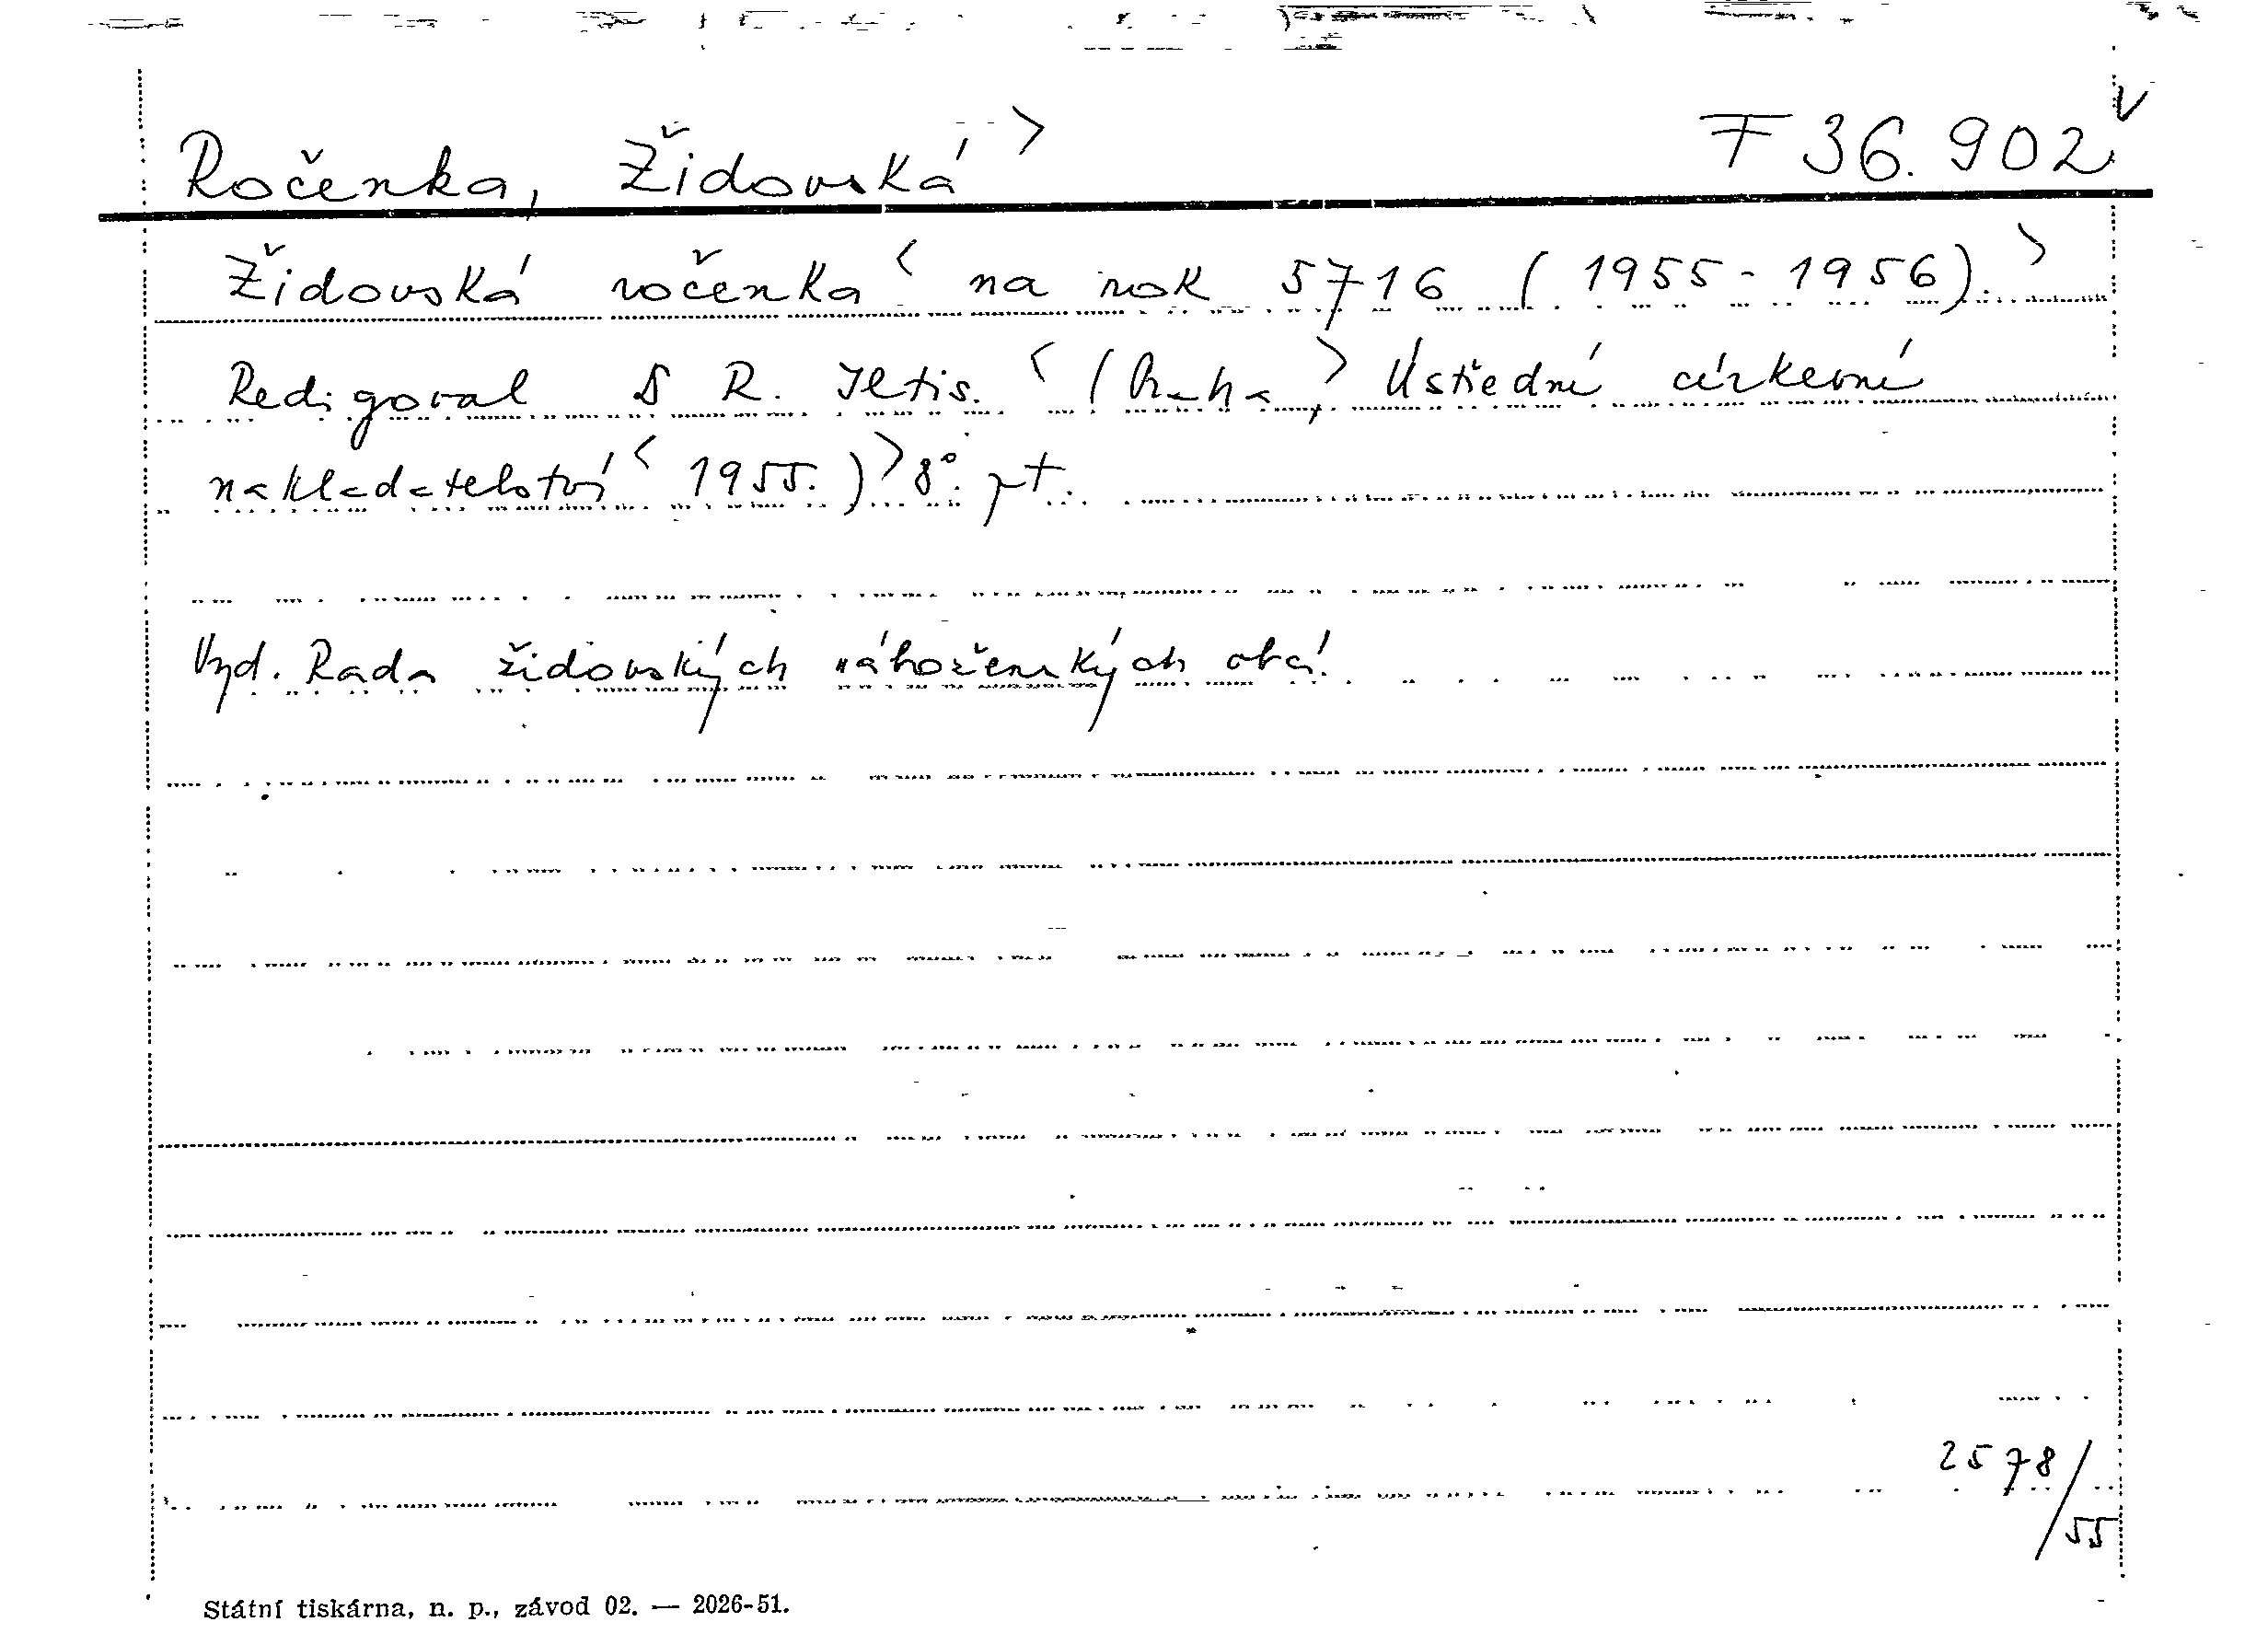 Ročenka, Židovská > F 36.902 v
Židovská ročenka < na rok 5716 (1955-1956). >
Redigoval D R. Iltis. < (Praha, > Ústřední církevní
nakladatelství < 1955.) > 8°. pt.
Vyd. Rada židovských náboženských obcí.
2578/55
Státní tiskárna, n. p., závod 02. — 2026-51.